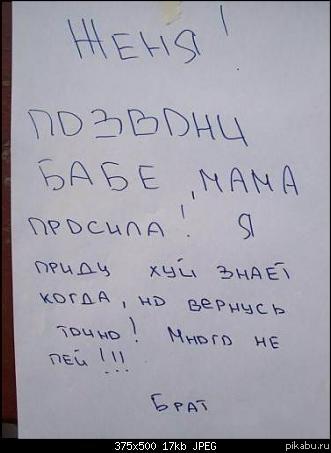 ЖЕНЯ!
ПОЗВОНИ
БАБЕ, МАМА
ПРОСИЛА! Я
ПРИДУ ХУЙ ЗНАЕТ
КОГДА, НО ВЕРНУСЬ
ТОЧНО! МНОГО НЕ
ПЕЙ!!!
БРАТ
375x500 17kb JPEG
pikabu.ru